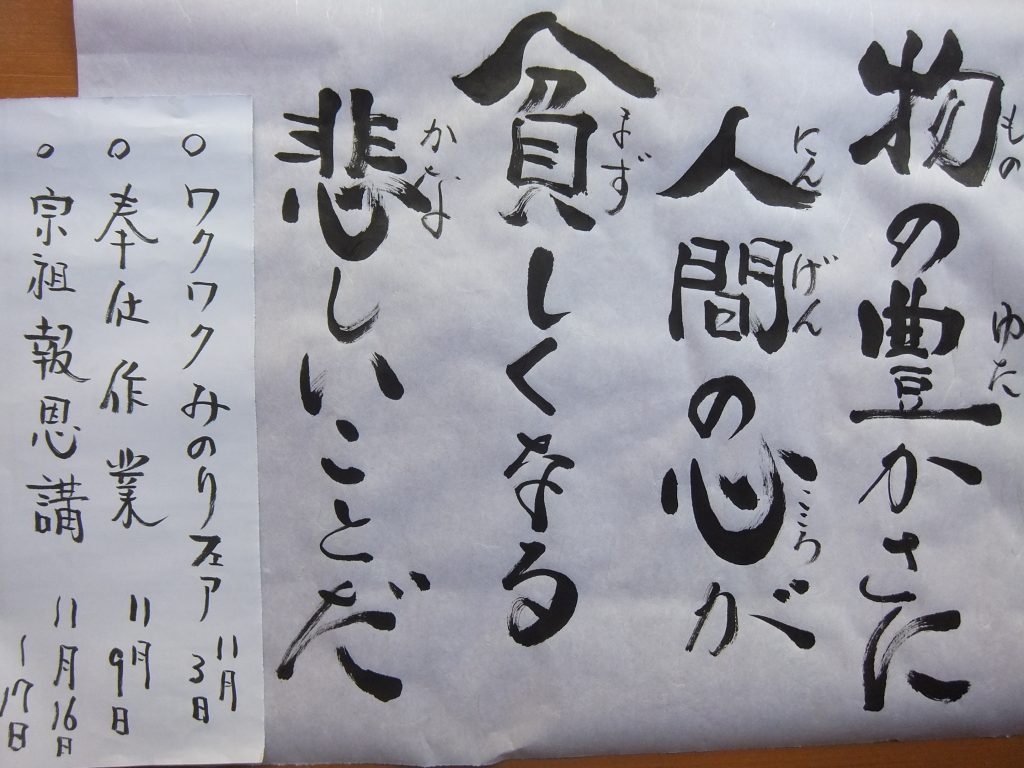 物の豊かさに
もの
ゆた
人間の心が
にんげん
こころ
貧しくなる
まず
悲しいことだ
かなし
○ ワクワクみのりフェア 11月3日
○ 奉仕作業 11月9日
○ 宗祖報恩講 11月16日〜17日